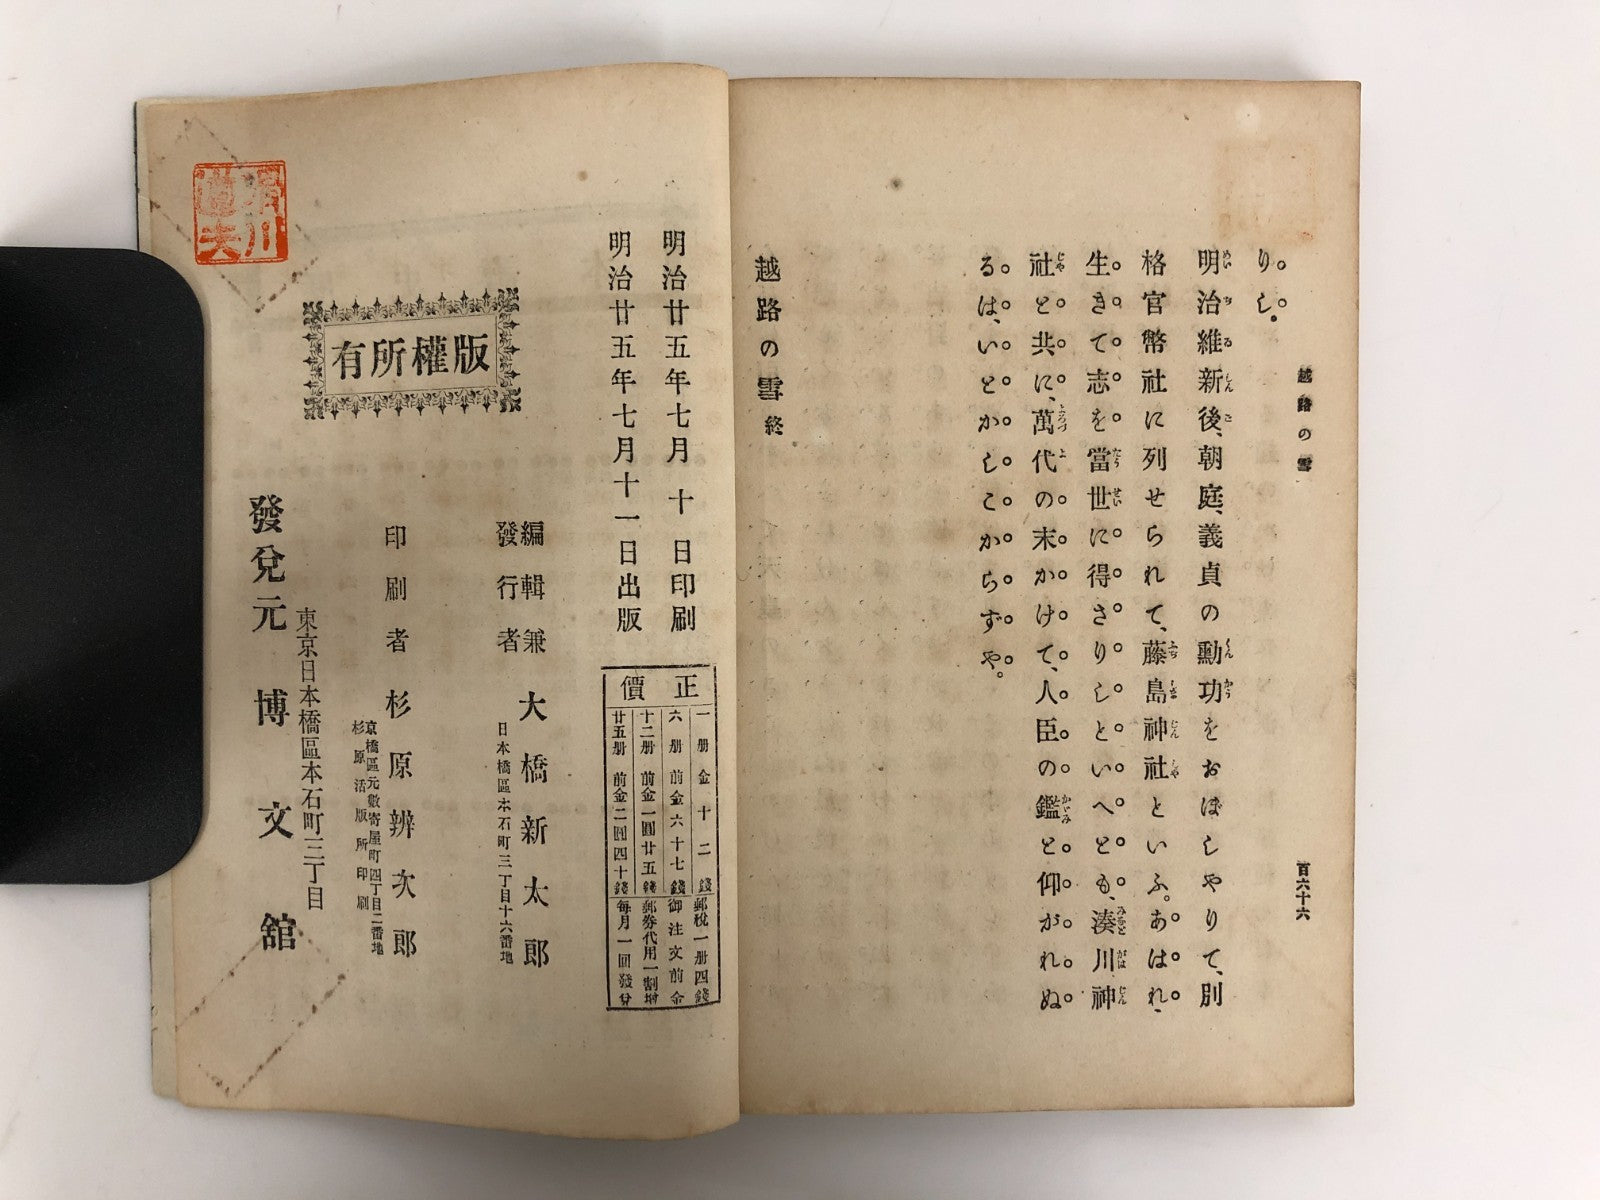 越路の雪
百六十六
りし。
明治維新後、朝庭、義貞の勳功をおぼしやりて、別
格官幣社に列せられて、藤島神社といふ。あはれ、
生きて志を當世に得さりしといへとも、湊川神
社と共に、萬代の末かけて、人臣の鑑と仰がれぬ
るは、いとかしこからずや。
越路の雪終
明治廿五年七月十日印刷
明治廿五年七月十一日出版
正價
一册金十二錢 郵稅一册四錢
六册前金六十七錢 御注文前金
十二册前金一圓廿五錢 郵券代用一割增
廿五册前金二圓四十錢 每月一回發兌
版權所有
編輯兼發行者 大橋新太郎
日本橋區本石町三丁目十六番地
印刷者 杉原辨次郎
京橋區元數寄屋町四丁目二番地
杉原活版所印刷
東京日本橋區本石町三丁目
發兌元 博文舘